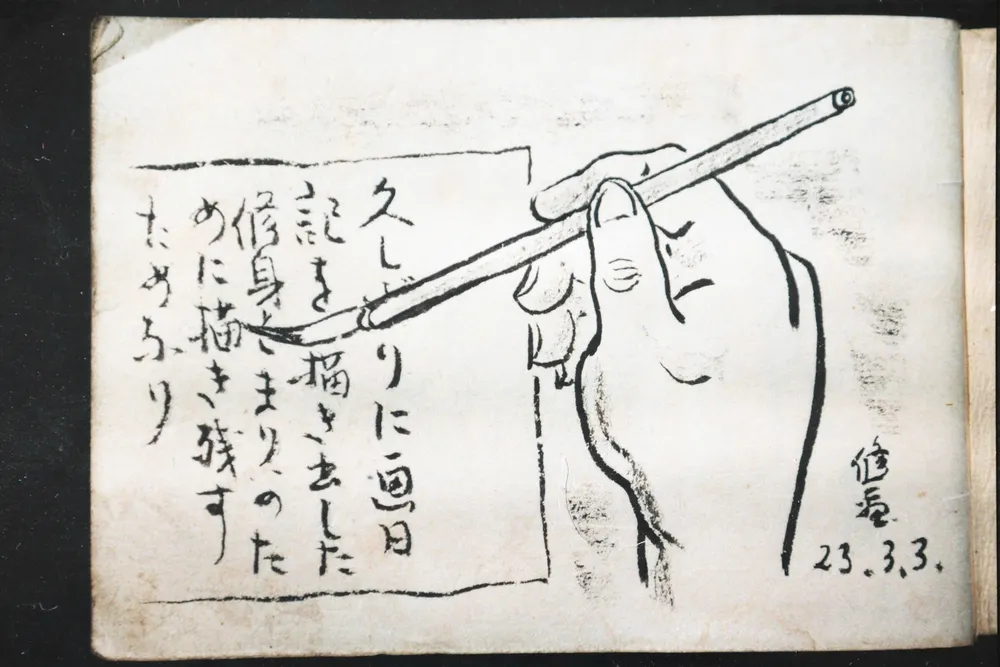 久しぶりに画日
記を描き出した
修身とまり、のた
めに描き残す
ためなり
修画
23.3.3.